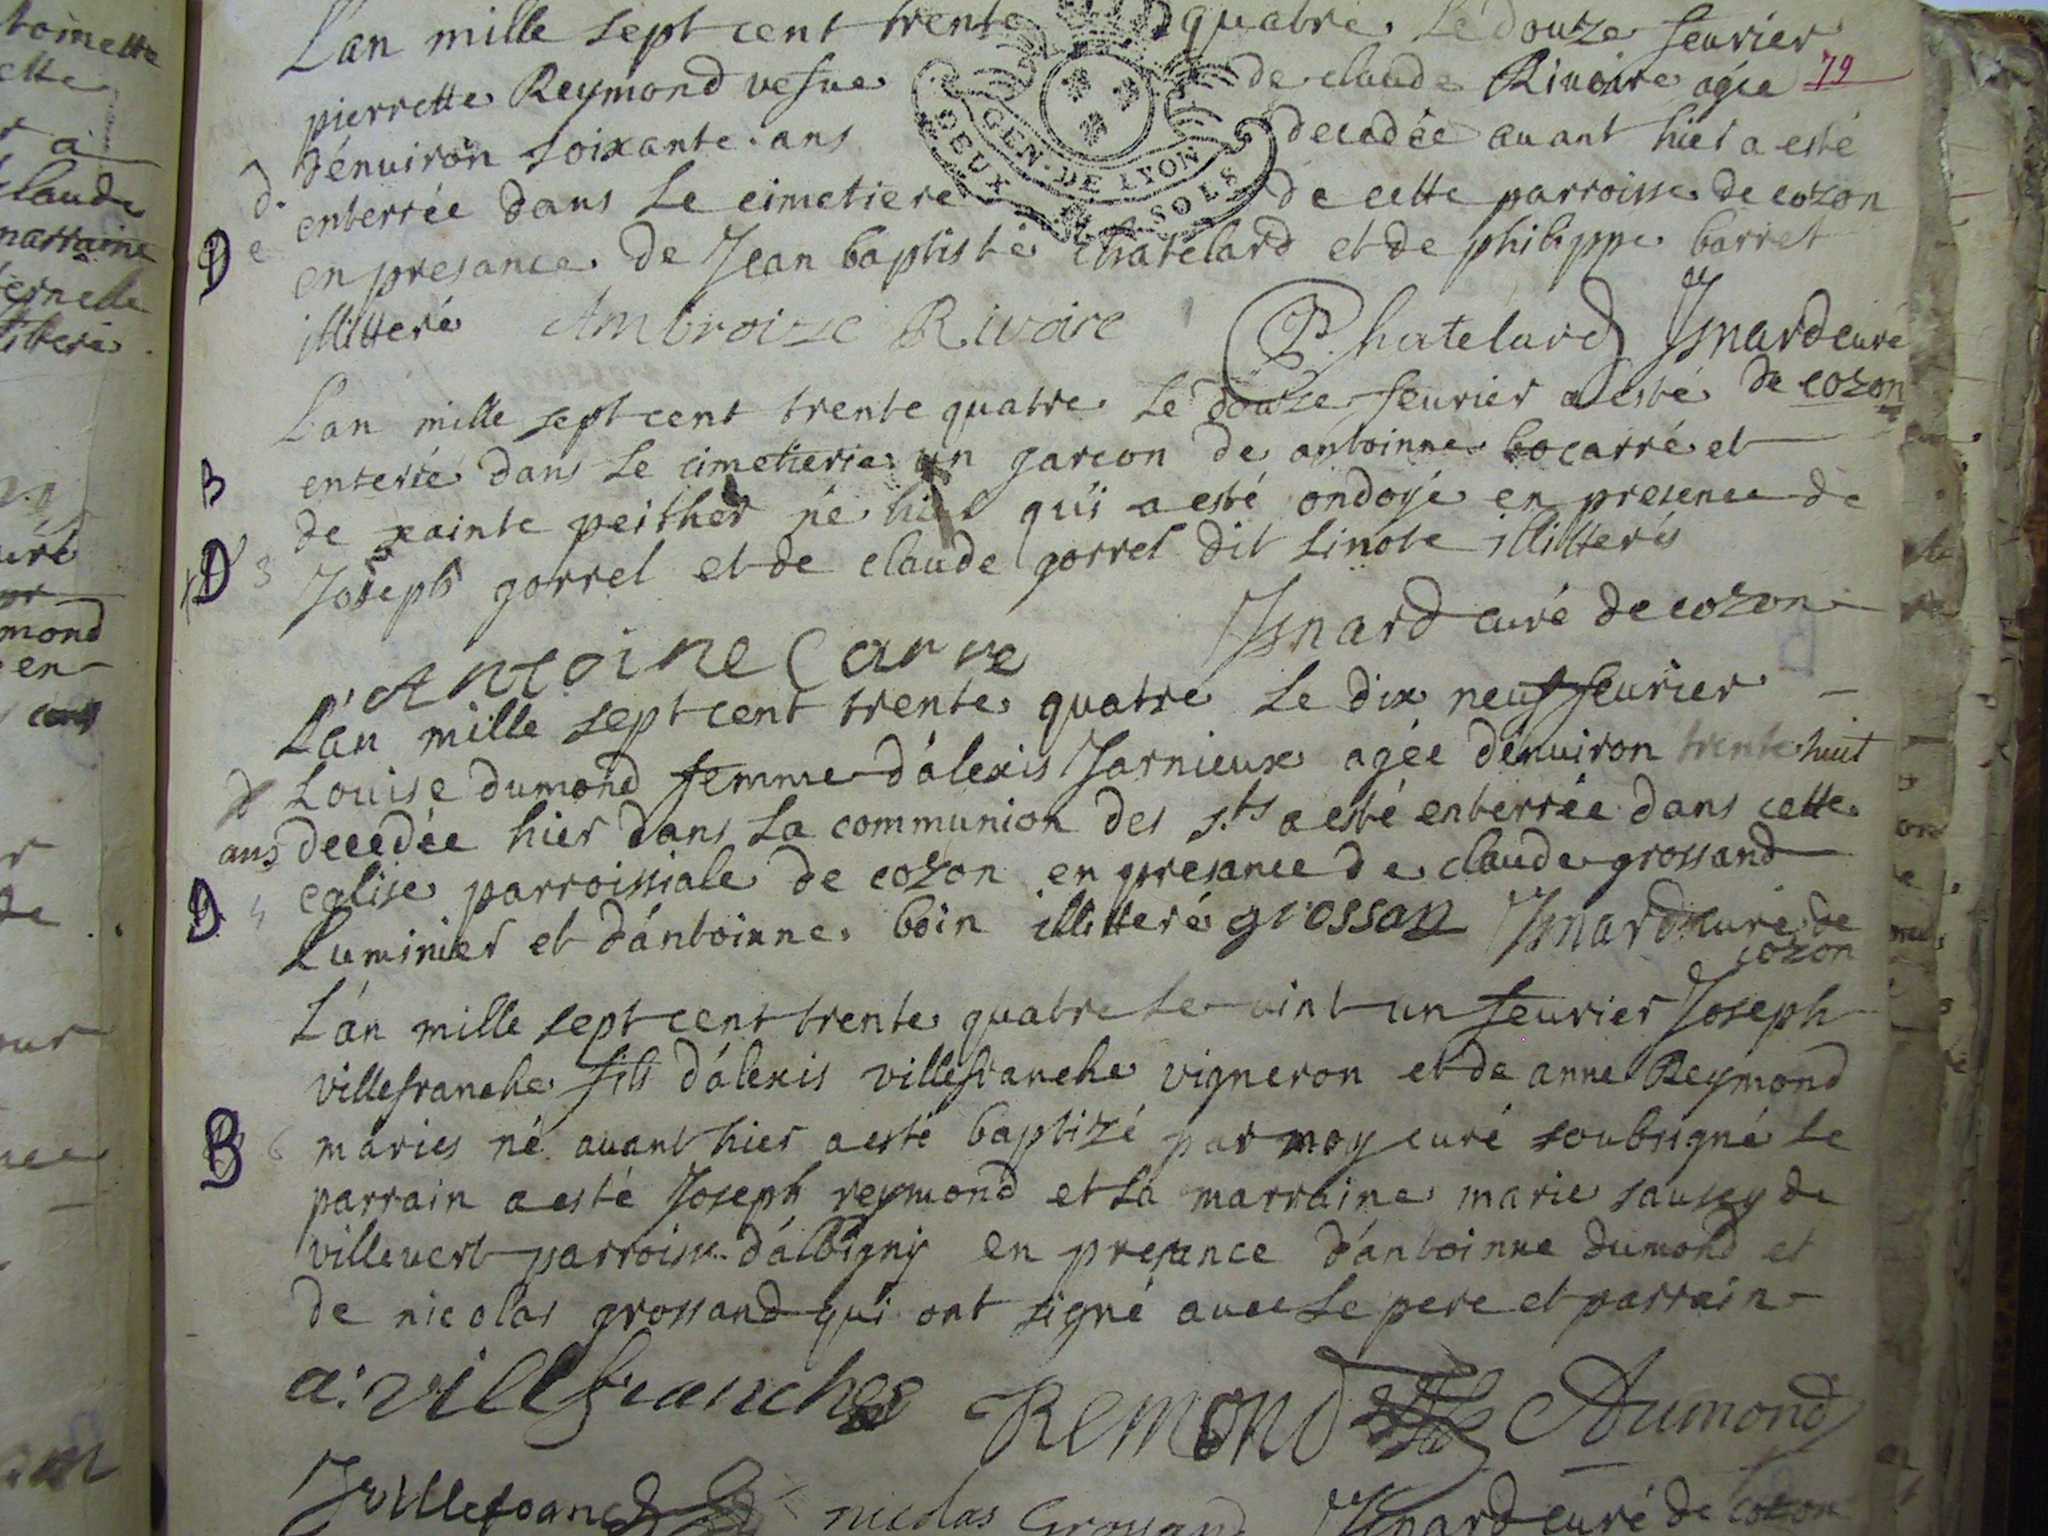 L'an mille sept cent trente quatre. Le douze feurier
pierrette Reymond vefue de claude Rivoire agée 79
d'énuiron soixante ans decedée auant hier a esté
enterrée dans Le cimetiere de cette parroisse de cozon
en presance de Jean baptiste chatelard et de philippe barret
illitteré Ambroize Rivoire P. Chatelard Jsnard curé
de cozon
GEN. DE LYON
DEUX SOLS
L'an mille sept cent trente quatre Le douze feurier a esté
enterré dans Le cimetierre un garcon de antoinne bocarré et
de xainte peither né hier qui a esté ondoyé en presence de
Joseph gorrel et de claude gorrel dit Linote illitterés
Antoine Carre Jsnard curé de cozon
L'an mille sept cent trente quatre Le dix neuf feurier
Louise dumond femme d'alexis Jarnieux agée d'enuiron trente huit
ans decedée hier dans La communion des s.ts a esté enterrée dans cette
eglise parroissiale de cozon en presance de claude grossand
Luminier et d'antoinne boin illitteré grossan Jsnard curé de
cozon
L'an mille sept cent trente quatre Le vint un feurier Joseph
villefranche fils d'alexis villefranche vigneron et de anne Reymond
maries né auant hier a esté baptizé par moy curé soubsigné Le
parrain a esté Joseph reymond et La marraine marie sausey de
villevert parroisse d'albigny en presence d'antoinne dumond et
de nicolas grossand qui ont signé auec Le pere et parrain
a. villefranche Remond A dumond
J villefranche nicolas Grossand Jsnard curé de cozon